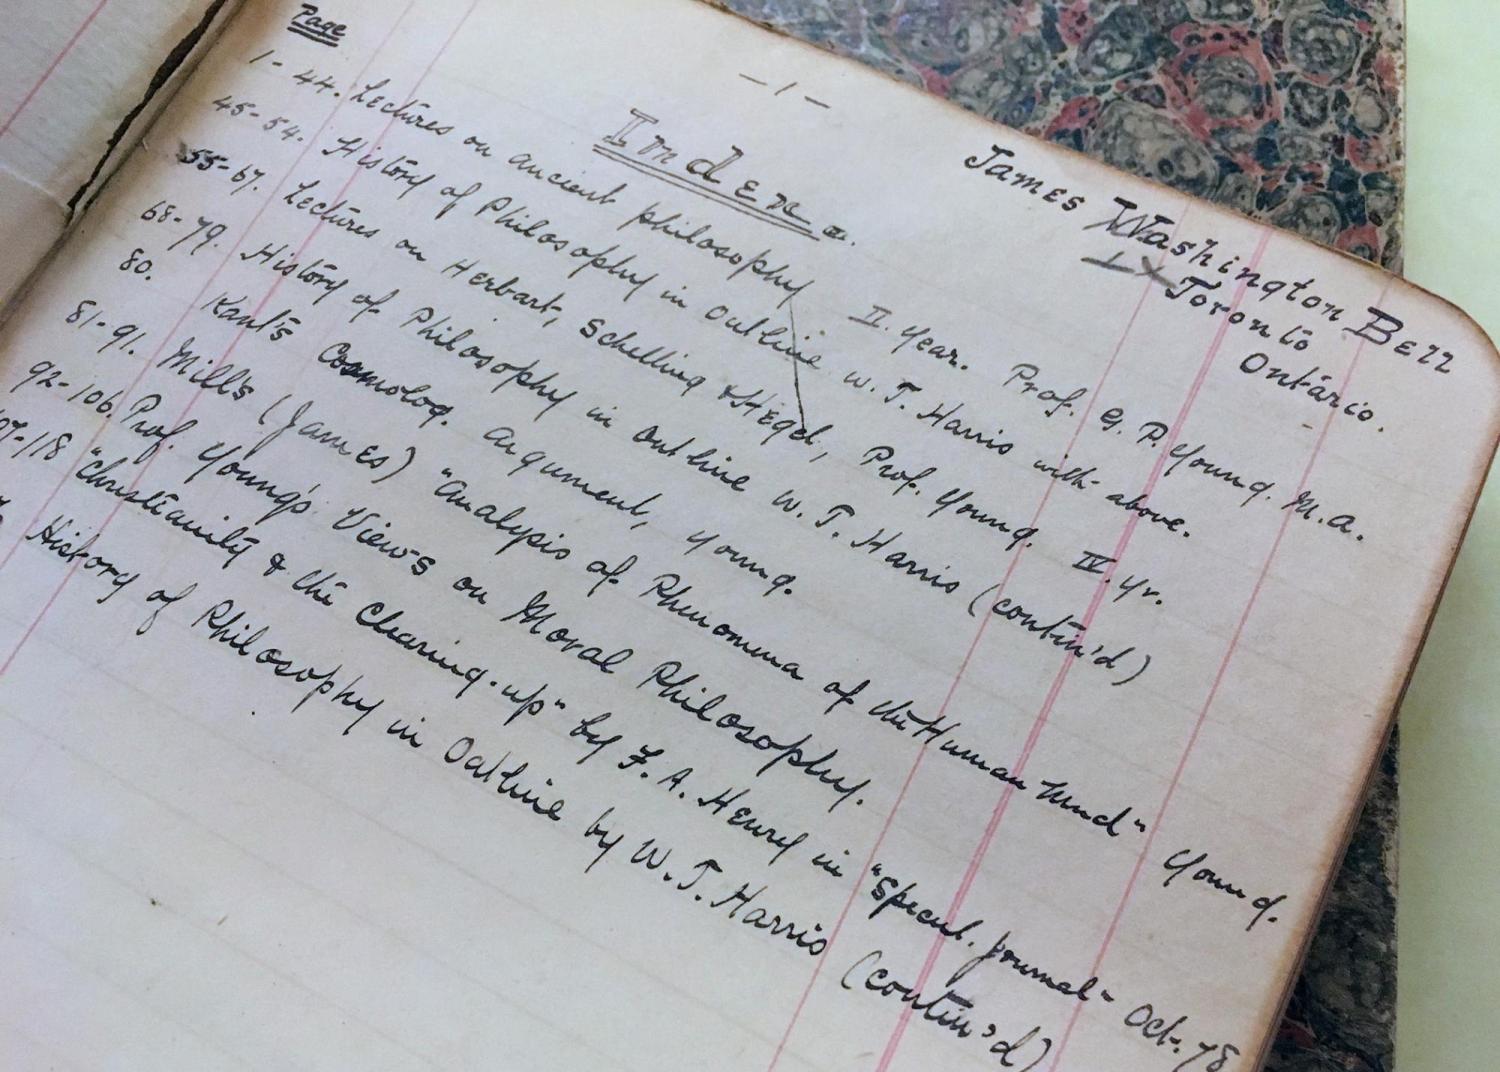 - 1 -
James Washington Bell
Toronto
Ontario.
Index.
Page
1 - 44. Lectures on ancient philosophy II. Year. Prof. G. P. Young. M.A.
45 - 54. History of Philosophy in Outline W. T. Harris with above.
55 - 67. Lectures on Herbart, Schelling & Hegel, Prof. Young. IV. yr.
68 - 79. History of Philosophy in Outline W. T. Harris (contin'd)
80. Kant's Cosmolog. Argument, Young.
81 - 91. Mill's (James) "Analysis of Phenomena of the Human Mind" Young.
92 - 106. Prof. Young's Views on Moral Philosophy.
107 - 118 "Christianity & the Clearing-up" by F. A. Henry in "Specul. Journal" Oct. 78
History of Philosophy in Outline by W. T. Harris (contin'd)